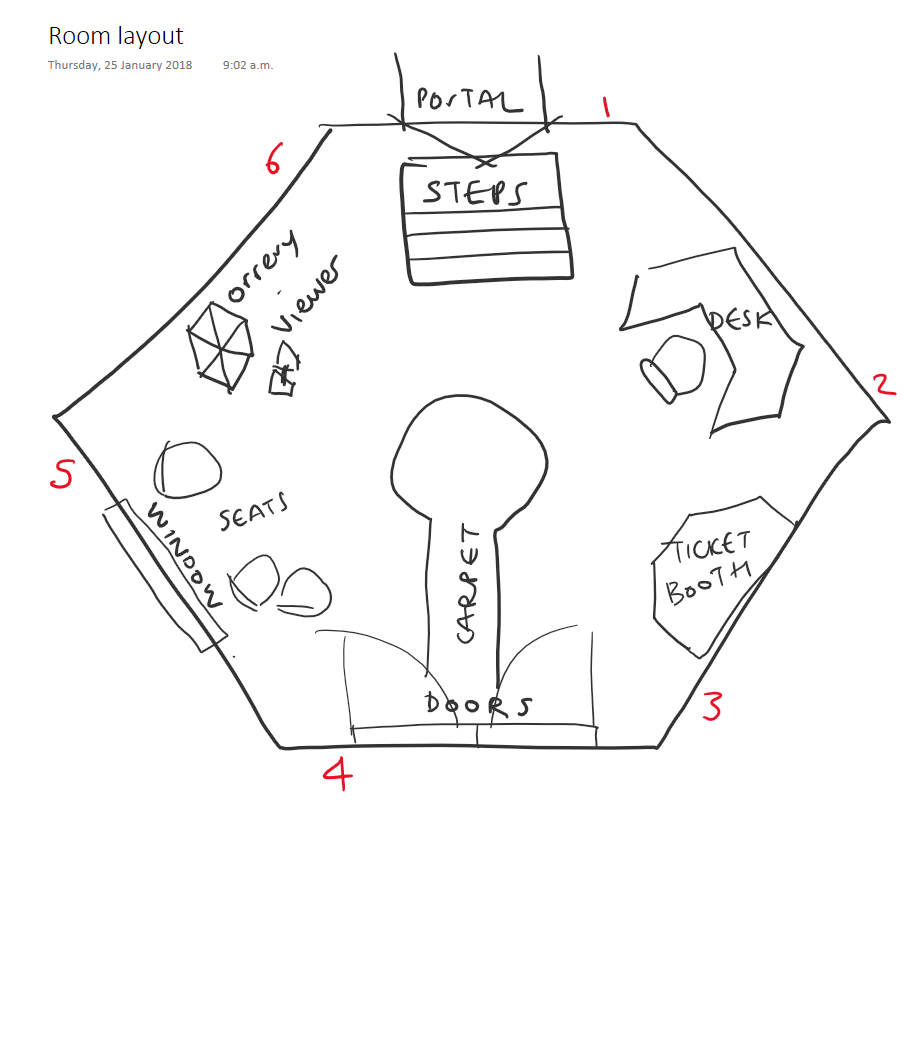 Room layout
Thursday, 25 January 2018 9:02 a.m.
PORTAL
1
6
STEPS
orrery
viewer
DESK
2
5
WINDOW
SEATS
CARPET
TICKET
BOOTH
DOORS
3
4